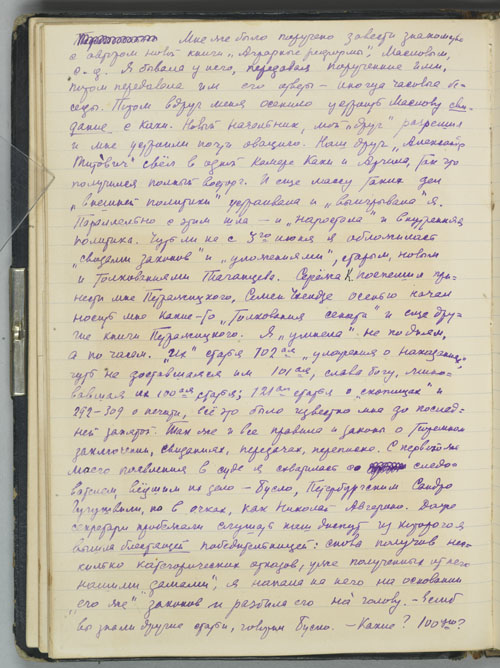 Мне же было поручено завести знакомство
с автором новой книги „Аграрные реформы", Масловым,
с.-д. Я бывала у него, передавая поручение Ими,
потом передавала им его ответы – иногда часовые бе-
седы. Потом вдруг меня осенило устроить Маслову сви-
дание с Каки. Новый начальник, мой „друг" разрешил
и мне устроили почти овацию. Наш друг „Александр
Титович" свёл в одной камере Каки и Лучина, так что
получился полный восторг. И ещё массу таких дел
„внешней политики" устраивала и „выигрывала" я.
Параллельно с этим шла – и „наростала" и внутренняя
политика. Чуть ли не с 3го июня я обложилась
„сводами законов" и „уложениями", старым, новым
и толкованиями Таганцева. Серёжа К. поспешил при-
нести мне Петражицкого, Семен осенью начал
носить мне какие-то „Толкования сената" и еще дру-
гие книги Петражицкого. Я „училась" не по дням,
а по часам. статья 102ая „уложения о наказании",
чуть не доставшаяся им 101ая, слава богу, мино-
вавшая их 100ая статья; 121ая статья о „скопищах" и
292-309 о печати, всё это было известно мне до послед-
ней запятой. Так же и все правила и законы о тюремном
заключении, свиданиях, передачах, переписке. С первого же
моего появления в суде я схватилась со следо-
вателем, ведущим их дело – Бусло, Петербургским Сандро
но в очках, как Николай Авгерино. Даже
секретари прибежали слушать наш диспут из которого я
вышла блестящей победительницей: снова получив нес-
колько категорических отказов, уже полученных от него
нашими „дамами", я напала на него на основании
„его же" законов и разбила его на голову. – Если б
вы знали другие статьи, говорил Бусло. – Какие? 100ую?